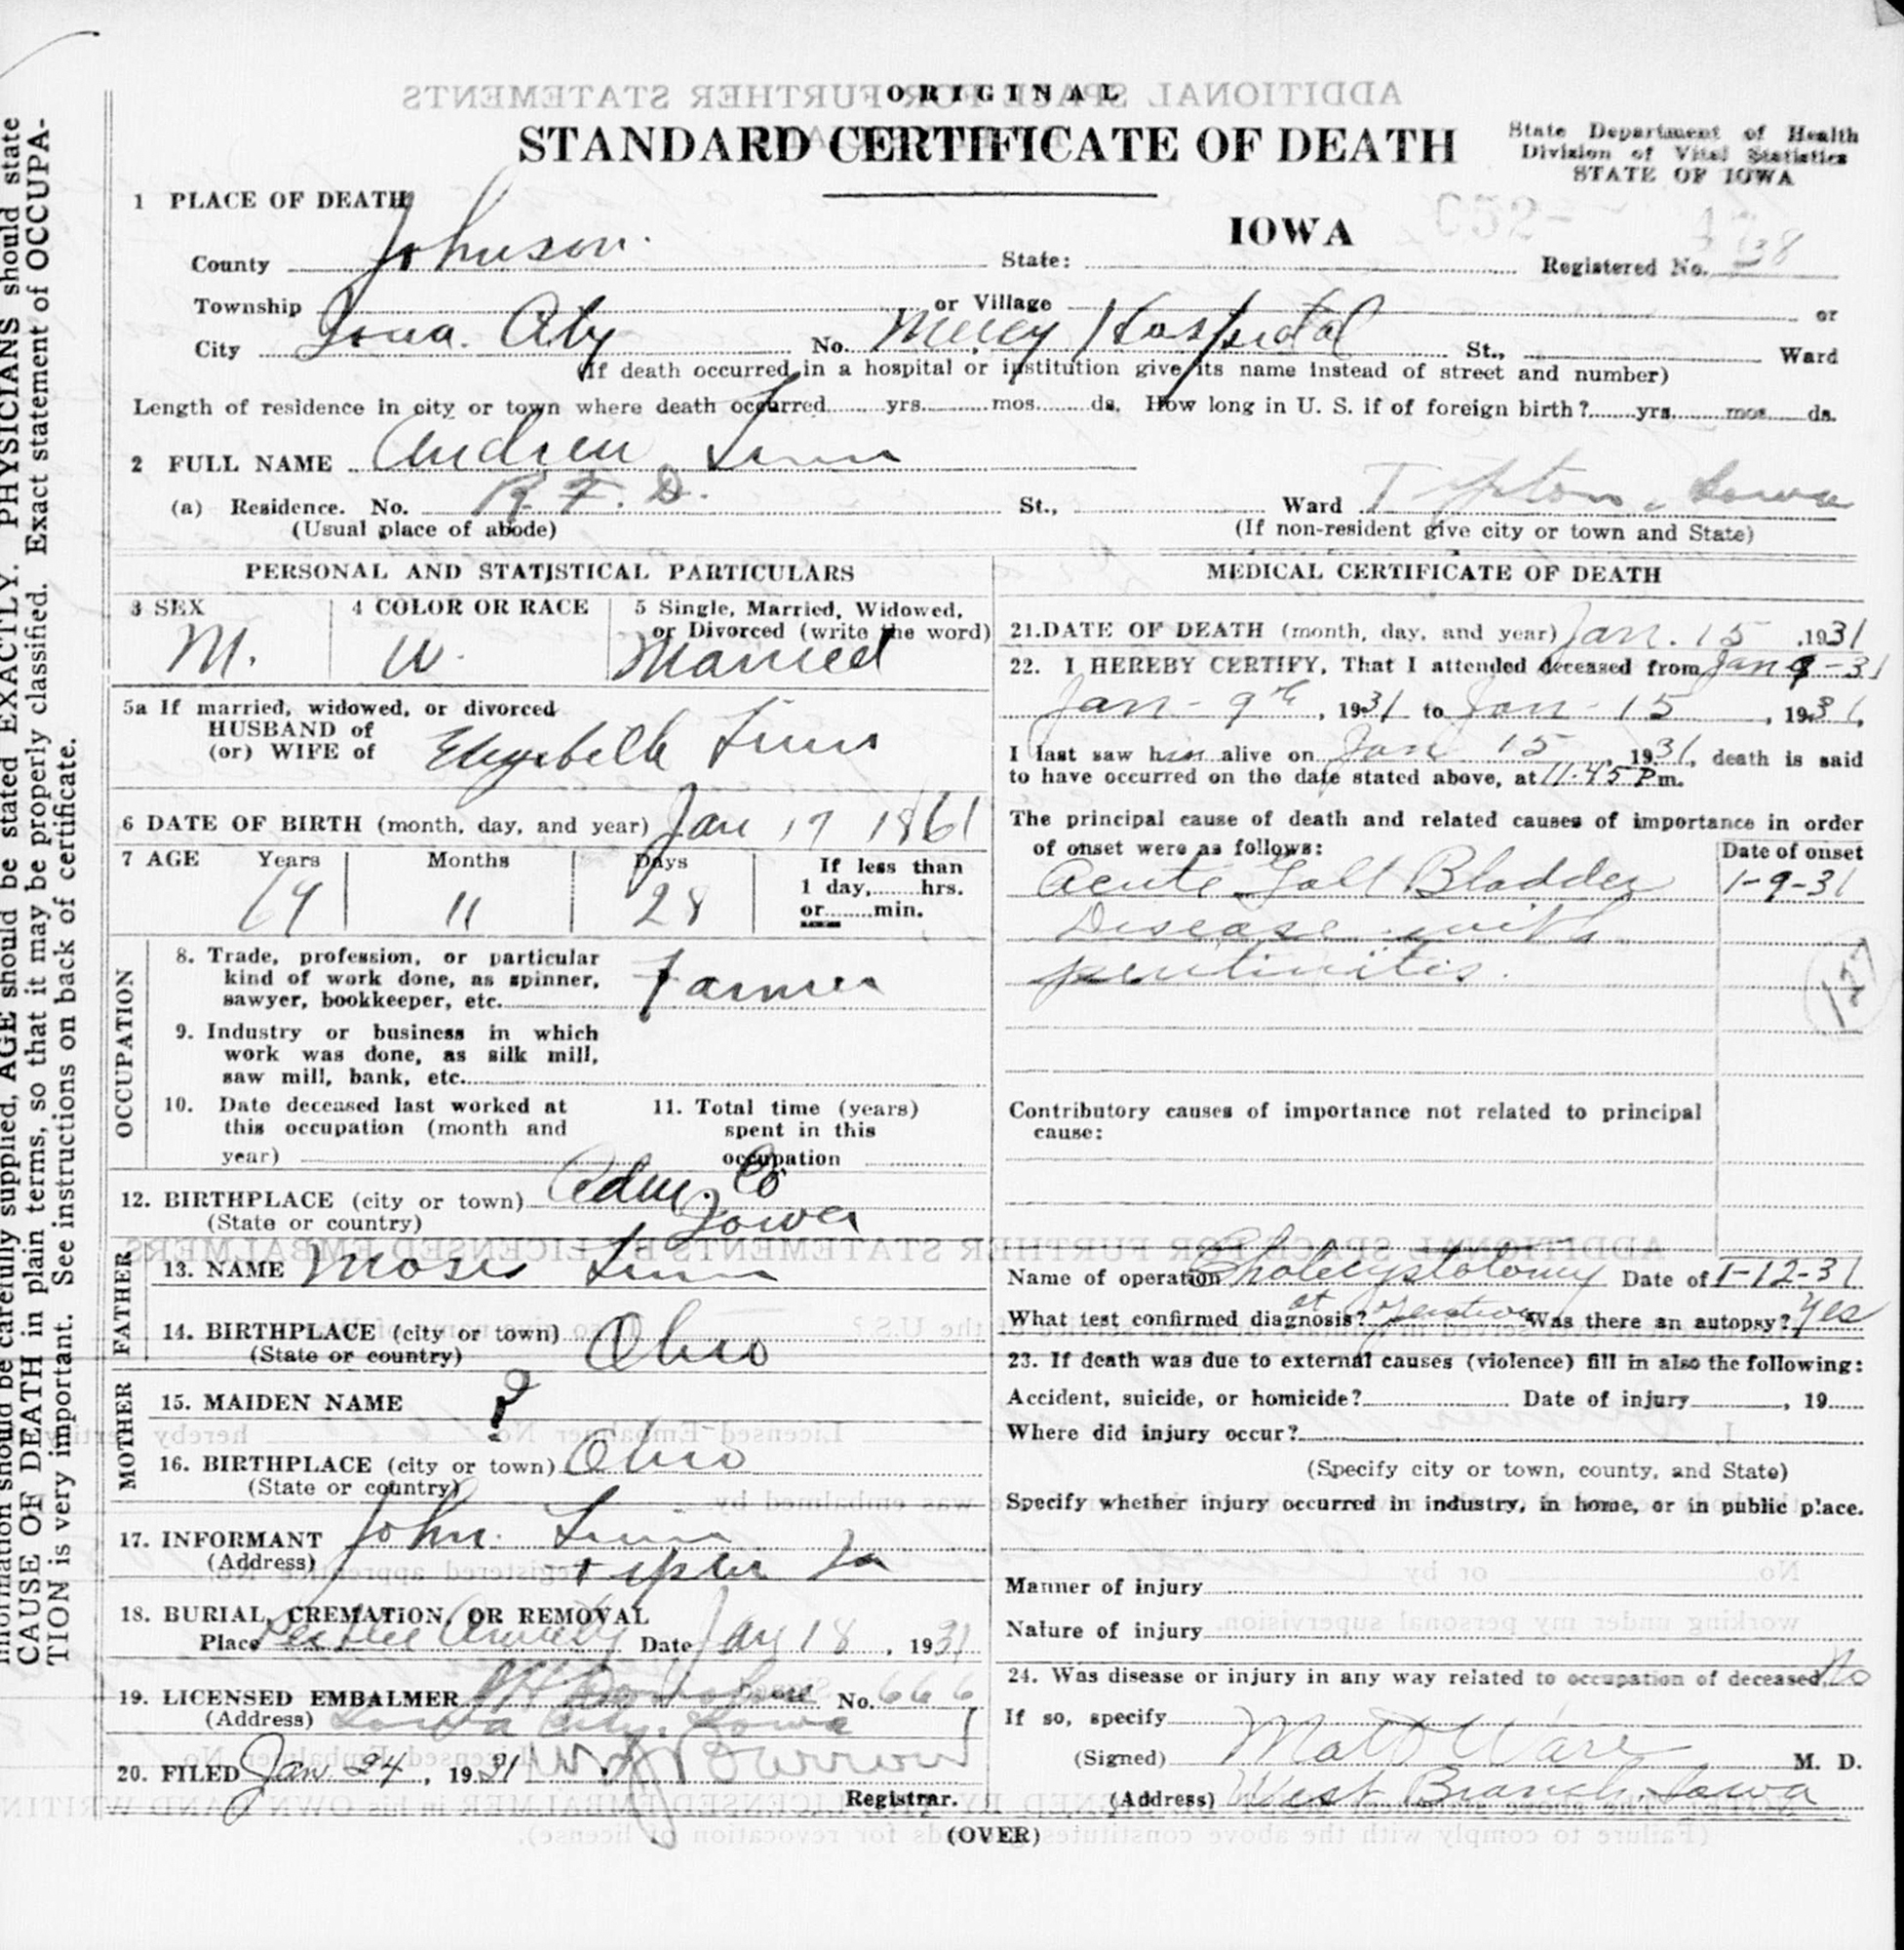 ORIGINAL
STANDARD CERTIFICATE OF DEATH
State Department of Health
Division of Vital Statistics
STATE OF IOWA
1 PLACE OF DEATH
IOWA
County Johnson. State: Registered No. 38
Township or Village or
City Iowa City No. Mercy Hospital St., Ward
(If death occurred in a hospital or institution give its name instead of street and number)
Length of residence in city or town where death occurred yrs. mos. ds. How long in U. S. if of foreign birth? yrs. mos. ds.
2 FULL NAME Andrew Linn
(a) Residence. No. R. F. D. St., Ward Tipton, Iowa
(Usual place of abode) (If non-resident give city or town and State)
PERSONAL AND STATISTICAL PARTICULARS
3 SEX 4 COLOR OR RACE 5 Single, Married, Widowed,
or Divorced (write the word)
M. W. Married
5a If married, widowed, or divorced
HUSBAND of
(or) WIFE of Elizabeth Linn
6 DATE OF BIRTH (month, day, and year) Jan 17 1861
7 AGE Years Months Days If less than
1 day, hrs.
or min.
69 11 28
OCCUPATION
8. Trade, profession, or particular
kind of work done, as spinner,
sawyer, bookkeeper, etc. Farmer
9. Industry or business in which
work was done, as silk mill,
saw mill, bank, etc.
10. Date deceased last worked at
this occupation (month and
year)
11. Total time (years)
spent in this
occupation
12. BIRTHPLACE (city or town) Co
(State or country) Iowa
FATHER
13. NAME Moses Linn
14. BIRTHPLACE (city or town) Ohio
(State or country)
MOTHER
15. MAIDEN NAME ?
16. BIRTHPLACE (city or town) Ohio
(State or country)
17. INFORMANT John Linn
(Address) Tipton Ia
18. BURIAL, CREMATION, OR REMOVAL
Place Date Jan 18, 1931
19. LICENSED EMBALMER No. 666
(Address) Iowa City, Iowa
20. FILED Jan 24, 1931
Registrar.
MEDICAL CERTIFICATE OF DEATH
21. DATE OF DEATH (month, day, and year) Jan. 15, 1931
22. I HEREBY CERTIFY, That I attended deceased from Jan 9-31
Jan - 9th, 1931 to Jan - 15, 1931,
I last saw him alive on Jan 15, 1931, death is said
to have occurred on the date stated above, at 11-45 P.m.
The principal cause of death and related causes of importance in order
of onset were as follows: Date of onset
Acute Gall Bladder 1-9-31
Disease with
peritinitis.
127
Contributory causes of importance not related to principal
cause:
Name of operation Cholecystotomy Date of 1-12-31
What test confirmed diagnosis? at operation Was there an autopsy? Yes
23. If death was due to external causes (violence) fill in also the following:
Accident, suicide, or homicide? Date of injury , 19
Where did injury occur?
(Specify city or town, county, and State)
Specify whether injury occurred in industry, in home, or in public place.
Manner of injury
Nature of injury
24. Was disease or injury in any way related to occupation of deceased. No
If so, specify
(Signed) Matt Ware M. D.
(Address) West Branch, Iowa
(OVER)
information should be carefully supplied, AGE should be stated EXACTLY. PHYSICIANS should state
CAUSE OF DEATH in plain terms, so that it may be properly classified. Exact statement of OCCUPA-
TION is very important. See instructions on back of certificate.